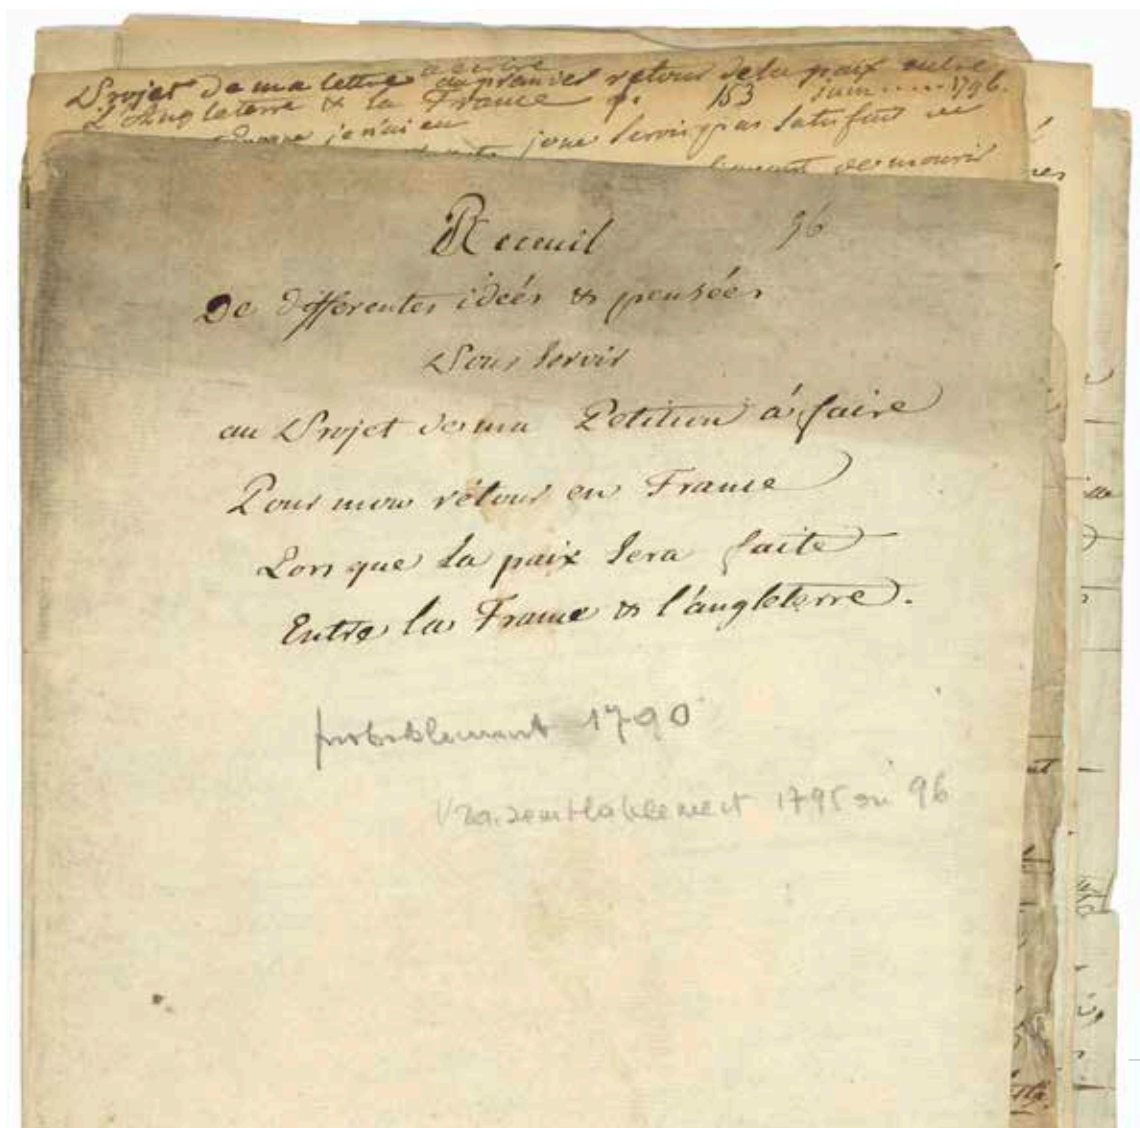 Projet de ma lettre a ecrire au premier retour de la paix entre
L'Angleterre & la France p. 153 juin ..... 1796.
je n'ai eu je ne serois pas satisfait
de mourir
96
Receuil
De differentes ideés & pensées
Pour servir
au Projet de ma Petition á faire
Pour mon rétour en France
Lors que la paix sera faite
Entre la France & l'angleterre.
probablement 1790
Vraisemblablement 1795 ou 96